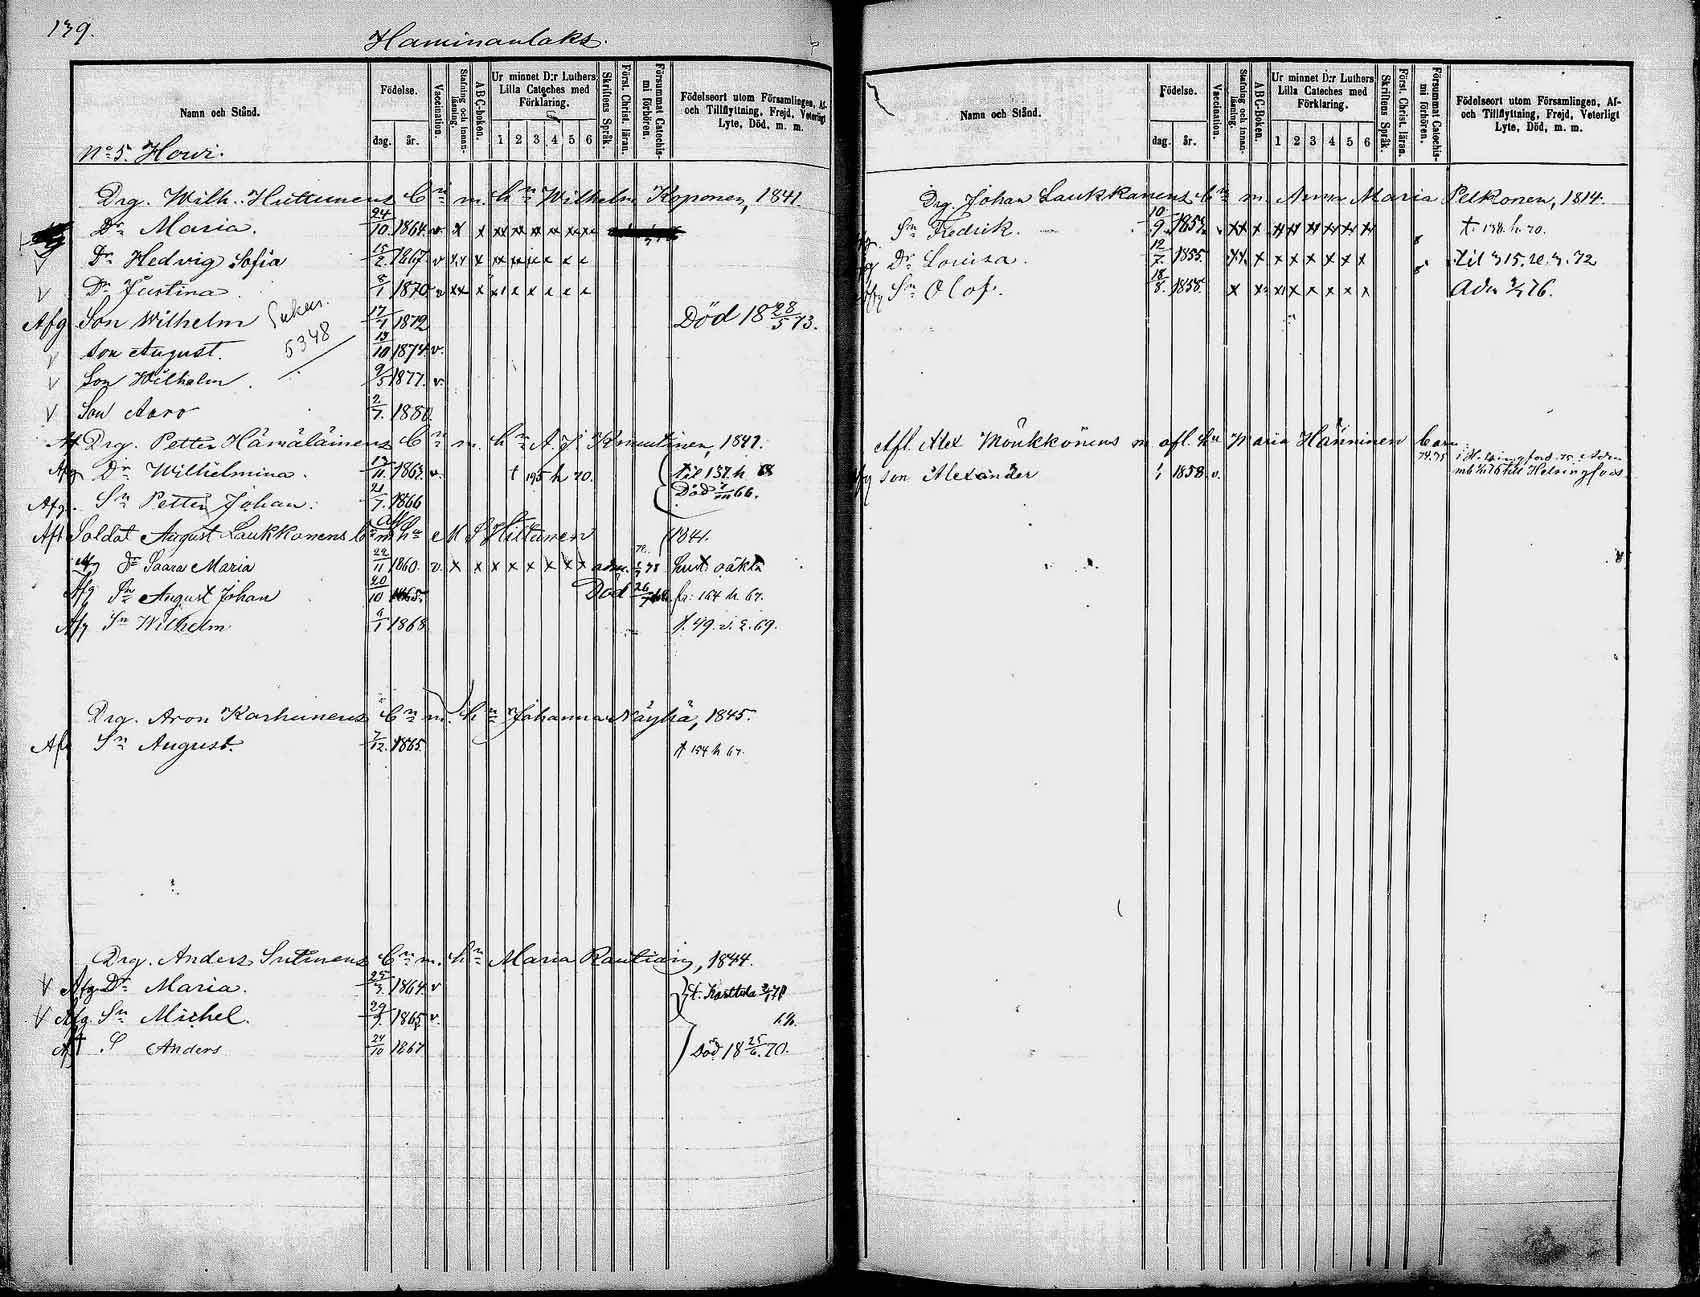 139.
Haminanlaks.
Namn och Stånd.
Födelse.
dag.
år.
Vaccination.
Stafning och innanläsning.
ABC-boken.
Ur minnet D:r Luthers Lilla Cateches med Förklaring.
1 2 3 4 5 6
Skriftens Språk.
Först. Christ. läran.
Försummat Catechismi förhören.
Födelseort utom Församlingen, Af- och Tillflyttning, Frejd, Veterligt Lyte, Död, m. m.
No 5. Howi.
Drg. Wilh. Huttunens Bn m. hn Wilhelm. Koponen, 1841.
Dr Maria. 24/10 1864. v x x xx xx xx xx xx xx
v Dr Hedvig Sofia 15/2. 1867. v xx x xx xx xx x x x
v Dr Justina 8/1 1870 v xx x x x x x x x
Afg Son Wilhelm 17/1 1872 Död 18 28/5 73.
5348
v Son August. 13/10 1874. v.
v Son Wilhelm 9/5 1877. v.
v Son Aaro 2/7. 1880.
Af Drg. Petter Hämäläinens Bn m. hn A. J. Knuutinen, 1841.
Afg Dr Wilhelmina. 13/11. 1863. v. t 195 h 70. Til 137 h 68
Afg. Sn Petter Johan. 21/7. 1866 Död 66.
Aft Soldat August Laukkanens Bn m hn M S Hiltunen 1841.
Afg Dr Saara Maria 22/11 1860. v. x x x x x x x x adm. 78 hust. oäkta
Afg Sn August Johan 20/10 1865. Död 26/7 fr: 164 h 67.
Afg Sn Wilhelm 6/1 1868 t. 49. 69.
Drg. Aron Karhunens Bn m. hn Johanna Näyhä, 1845.
Af Sn August. 7/12. 1865. t 154 h 67.
Drg. Anders Sutinens Bn m. hn Maria Rautiain, 1844.
v Afg Dr Maria. 25/3. 1864. v t. Karttula
v Afg Sn Michel. 29/9. 1865. v.
Af S Anders 24/10 1867 Död 18 25/6. 70.
Namn och Stånd.
Födelse.
dag.
år.
Vaccination.
Stafning och innanläsning.
ABC-Boken.
Ur minnet D:r Luthers Lilla Cateches med Förklaring.
1 2 3 4 5 6
Skriftens Språk.
Först. Christ. läran.
Försummat Catechismi förhören.
Födelseort utom Församlingen, Af- och Tillflyttning, Frejd, Veterligt Lyte, Död, m. m.
Drg. Johan Laukkanens Bn m Anna Maria Pelkonen, 1814.
Sn Fredrik. 10/9 1852. xx x xx xx xx xx xx xx t. 138. h. 70.
Dr Lovisa. 12/7. 1855. xx x x x x x x x til 315. 72
Sn Olof. 18/8. 1858. x x x x x x x x Adm 76.
Afl. Alex Mönkkönens m afl. hn Maria Hänninen barn
son Alexander 1/1 1858. v. Helsingfors